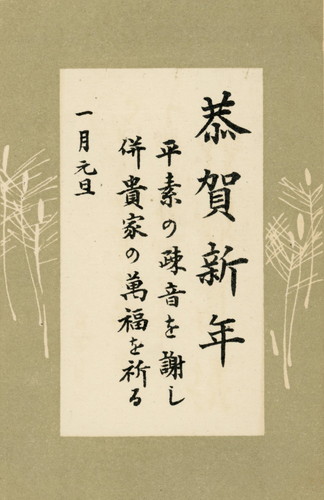 恭賀新年
平素の疎音を謝し
併貴家の萬福を祈る
一月元旦